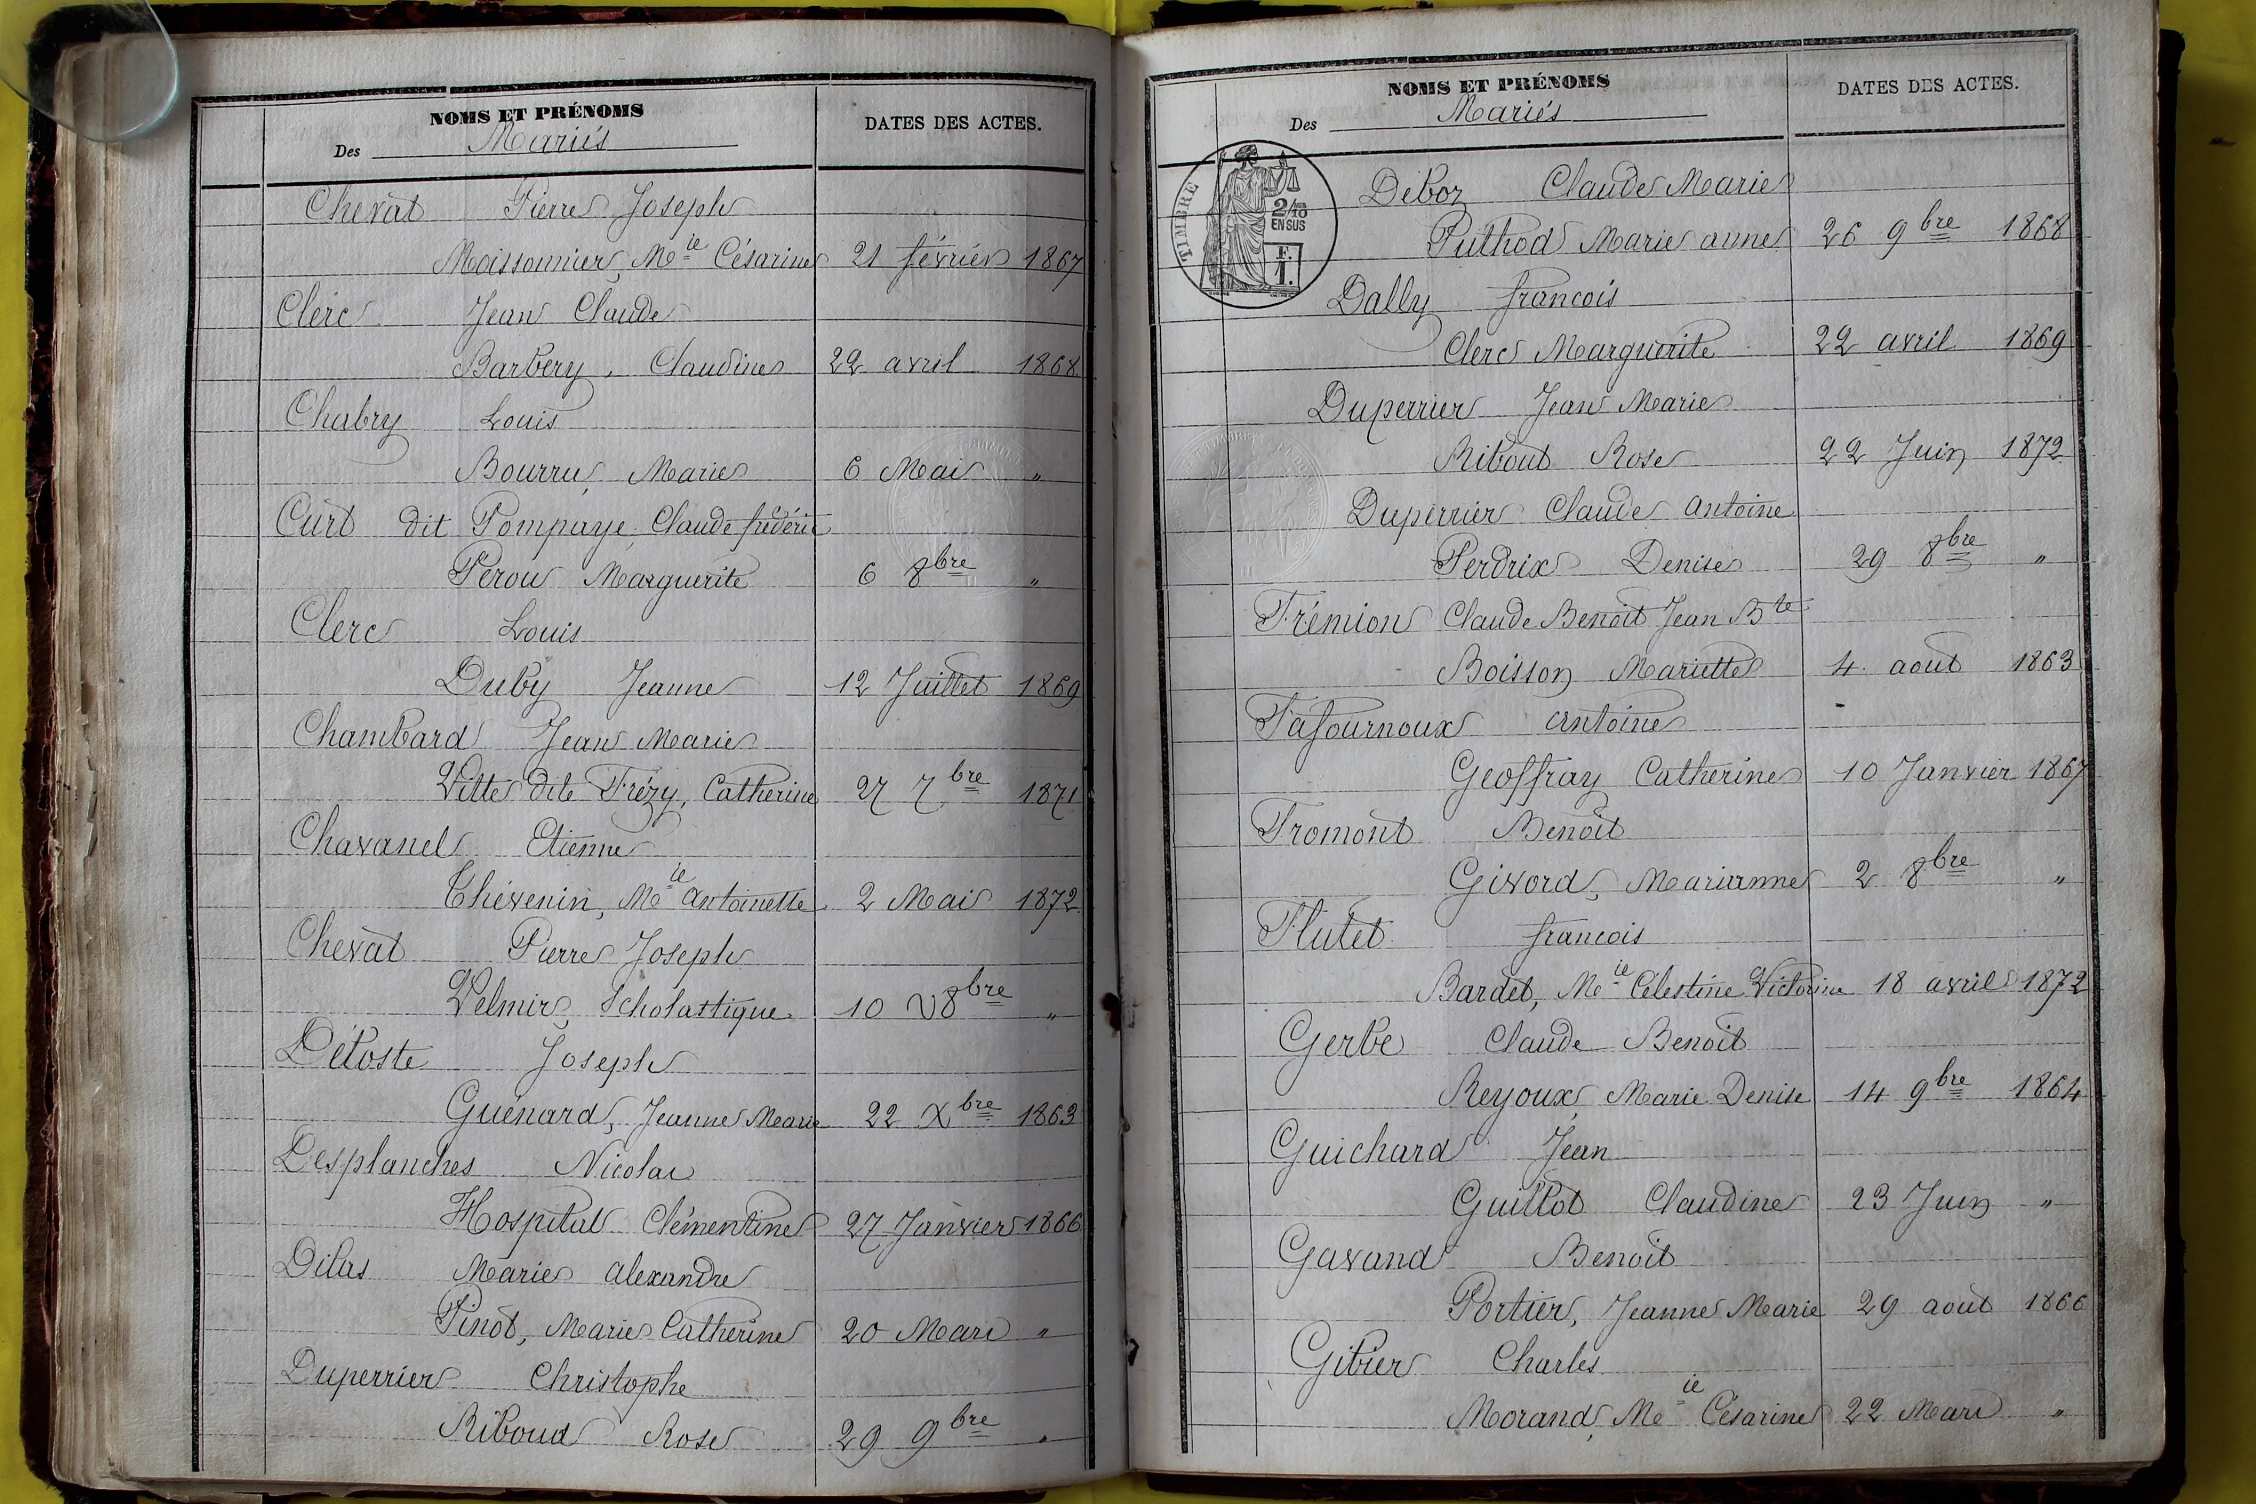 NOMS ET PRÉNOMS
Des Mariés
DATES DES ACTES.
Chevat Pierre Joseph
Moissonnier, Mie Césarine 21 février 1867
Clerc Jean Claude
Barbery, Claudine 22 avril 1868
Chabry Louis
Bourrus, Marie 6 Mai "
Curt dit Pompaye, Claude frédéric
Pérou Marguerite 6 8bre "
Clerc Louis
Duby Jeanne 12 Juillet 1869
Chambard Jean Marie
Vitte dite Frézy, Catherine 27 7bre 1871
Chavanel Etienne
Thévenin, Mie antoinette 2 Mai 1872
Chevat Pierre Joseph
Velmir, Scholastique 10 8bre "
Déloste Joseph
Guénard, Jeanne Marie 22 Xbre 1863
Desplanches Nicolas
Hospital Clémentine 27 Janvier 1866
Dilas Marie alexandre
Pinot, Marie Catherine 20 Mars "
Duperrier Christophe
Riboud Rose 29 9bre "
NOMS ET PRÉNOMS
Des Mariés
DATES DES ACTES.
TIMBRE
2/10
EN SUS
F.
1.
Déboz Claude Marie
Puthod Marie anne 26 9bre 1868
Dally francois
Clerc Marguerite 22 avril 1869
Duperrier Jean Marie
Ribout Rose 22 Juin 1872
Duperrier Claude antoine
Perdrix Denise 29 8bre "
Frémion Claude Benoît Jean Bte
Boisson Mariette 4 aout 1863
Fafournoux antoine
Geoffray Catherine 10 Janvier 1867
Fromont Benoit
Givord, Marianne 2 8bre "
Flutet francois
Bardet, Mie Célestine Victorine 18 avril 1872
Gerbe Claude Benoit
Reyoux, Marie Denise 14 9bre 1864
Guichard Jean
Guillot Claudine 23 Juin "
Gavand Benoit
Portier, Jeanne Marie 29 août 1866
Gibier Charles
Morand, Mie Césarine 22 Mars "